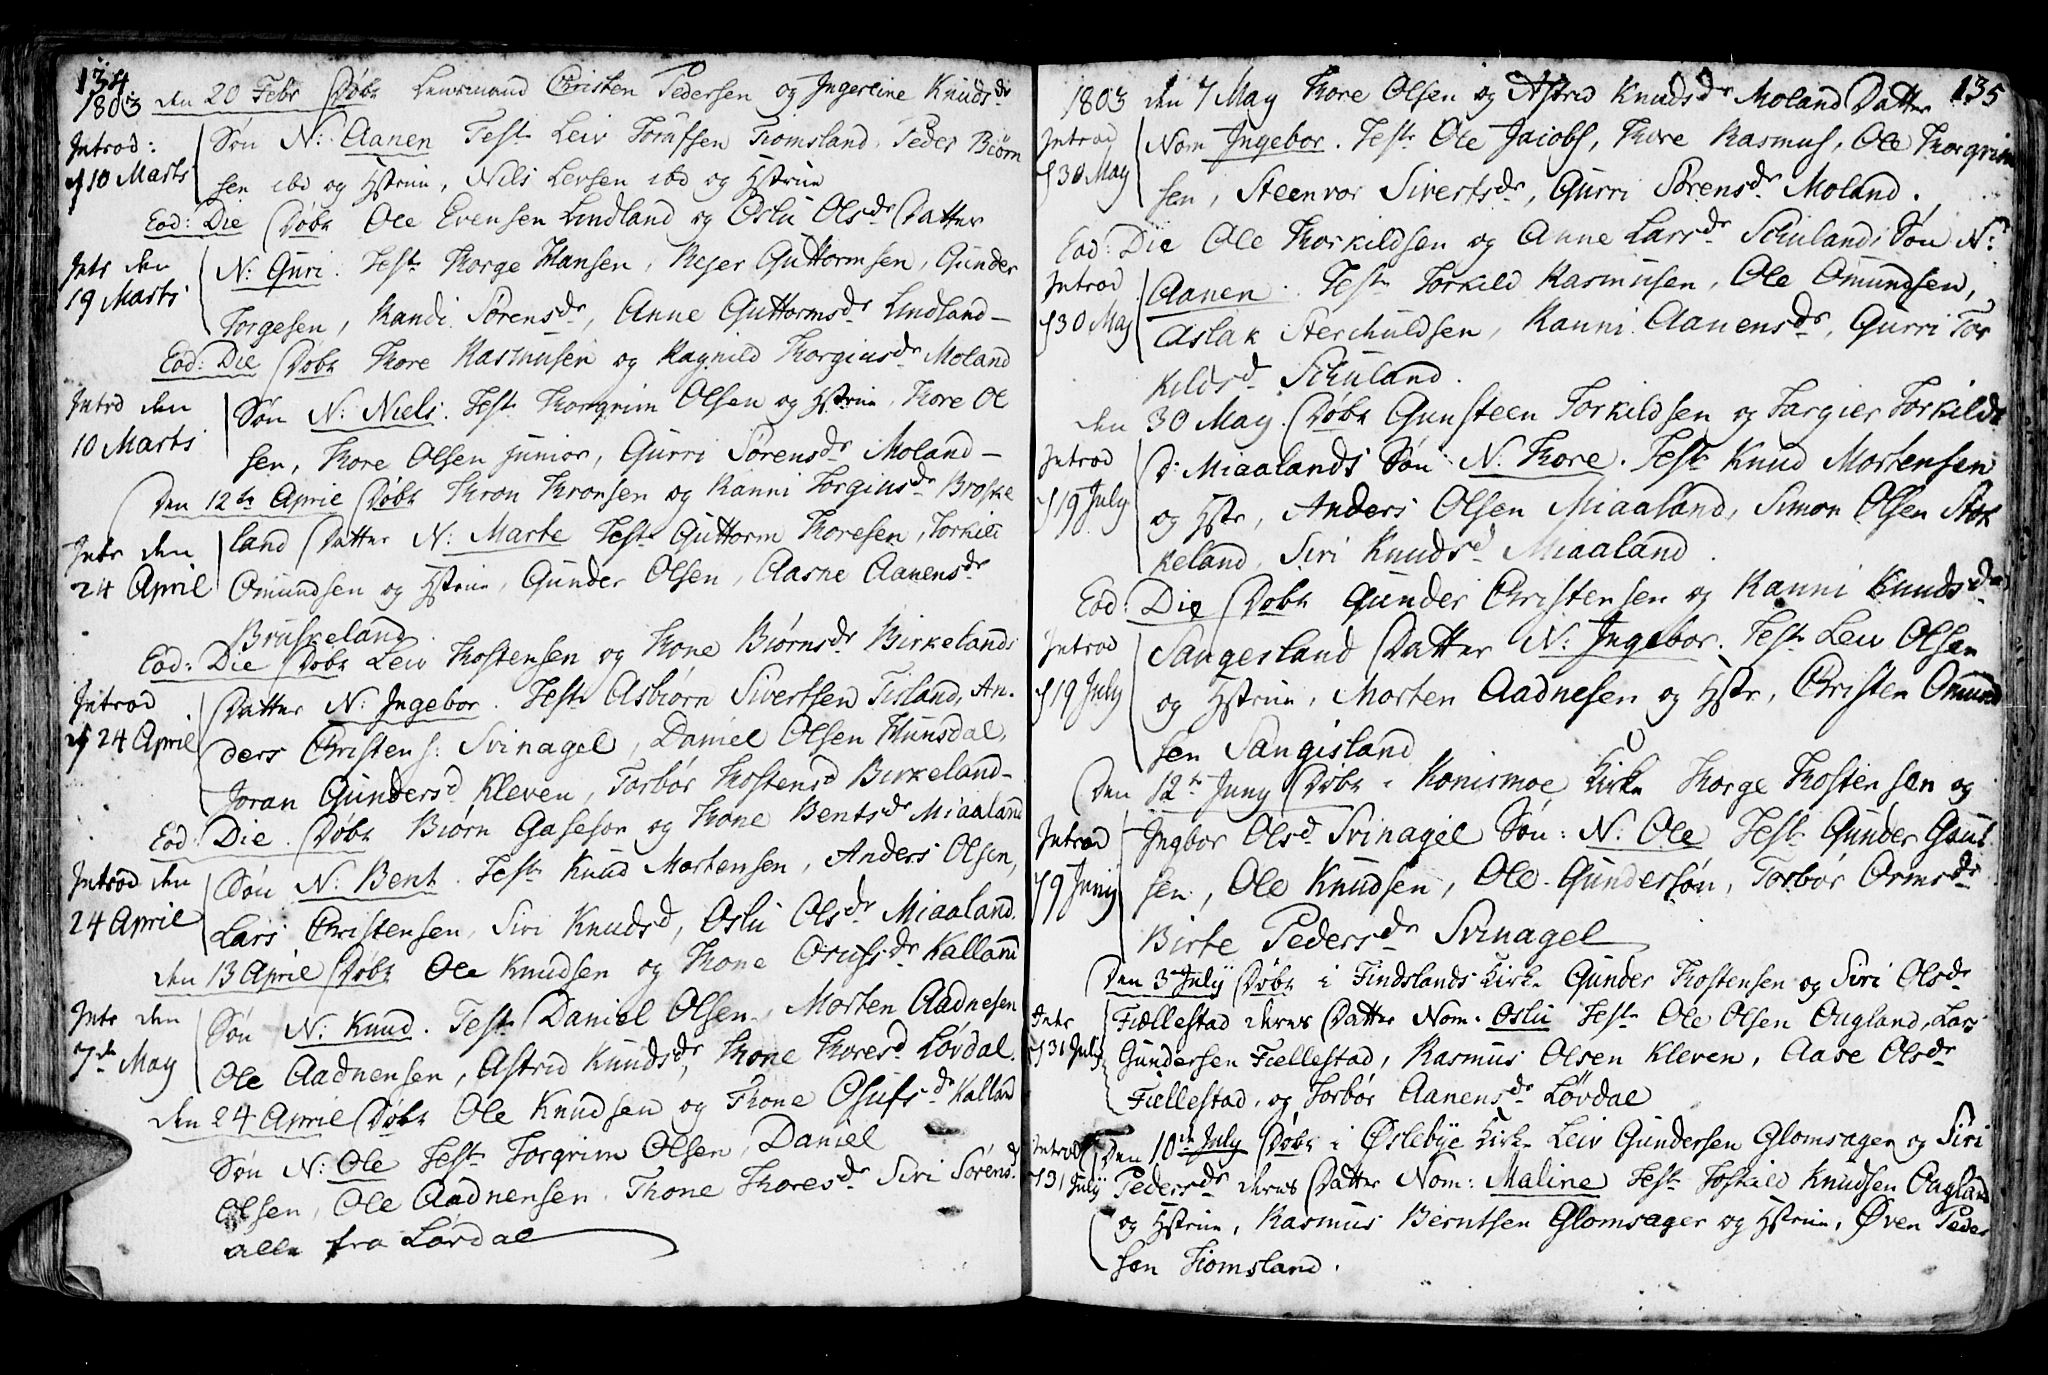 134
1803 den 20 Febr Døbt Lensmand Christen Pedersen og Ingerline Knudsdr
Introd:
d 10 Marts
Søn N: Aanen Test: Leiv Toruffsen Tiomsland, Peder Biørn
sen ibd og Hstrue, Nils Levsen ibd og Hstrue
Eod: Die Døbt Ole Evensen Lindland og Oslu Olsdr Datter
Intr den
19 Marts
N: Guri. Test: Thorge Hansen, Reier Guttormsen, Gunder
Torgesen, Randi Sørensdr, Anne Guttormsdr Lindland –
Eod: Die Døbt Thore Rasmusen og Ragnild Thorgiusdr Moland
Intrd den
10 Marts
Søn N: Niels. Test: Thorgrim Olsen og Hstrue, Thore Ol
sen, Thore Olsen junior, Gurri Sørensdr Moland –
Den 12te April Døbt Thron Thronsen og Ranni Torgiusdr Broske
Intr den
24 April
land Datter N: Marte Test: Guttorm Thoresen, Torkild
Omundsen og Hstrue, Gunder Olsen, Aasne Aanensdr
Bruskeland.
Eod: Die Døbt Leiv Thostensen og Thone Biørnsdr Birkelands
Introd
d 24 April
Datter N: Ingebor. Test: Asbiørn Sivertsen Tisland, An-
ders Christens: Svinagel, Daniel Olsen Hunsdal,
Joran Gundersd Kleven, Torbør Thostensd Birkeland –
Eod: Die Døbt Biørn Gaseson og Thone Bentsdr Miaaland
Introd den
24 April
Søn N: Bent. Test: Knud Mortensen, Anders Olsen,
Lars Christensen, Siri Knudsd, Oslu Olsdr Miaaland.
den 13 April Døbt Ole Knudsen og Thone Orufsdr Kalland
Intr den
7de May
Søn N: Knud. Test: Daniel Olsen, Morten Aadnesen
Ole Aadnensen, Astrid Knudsdr, Thone Thoresd Løvdal.
den 24 April Døbt Ole Knudsen og Thone Osufsdr Kalland
Søn N: Ole Test: Torgrim Olsen, Daniel
Olsen, Ole Aadnensen, Thone Thoresdr Siri Sørensd
alle fra Lövdal
135
1803 den 7 May Thore Olsen og Astrid Knudsdr Moland Datter
Introd
d 30 May
Nom Ingebor. Test: Ole Jacobs, Thore Rasmus, Ole Thorgrim
sen, Steenvor Sivertsdr, Gurri Sørensdr Moland.
Eod: Die Ole Thorkildsen og Anne Larsdr Schulands Søn N:
Introd
d 30 May
Aanen. Test: Torkild Rasmusen, Ole Omundsen,
Aslak Sterchuldsen, Ranni Aanensdr, Gurri Tor
kildsd Schuland.
den 30 May. Døbt Gunsteen Torkildsen og Targier Torkilds
Introd
d 19 July
D: Miaalands Søn N: Thore. Test: Knud Mortensen
og Hstr, Anders Olsen Miaaland, Simon Olsen Stok
keland, Siri Knudsd Miaaland.
Eod: Die Døbt Gunder Christensen og Ranni Knudsdr
Introd
d 19 July
Sangesland Datter N: Ingebor. Test: Leiv Olsen
og Hstrue, Morten Aadnesen og Hstr, Christen Omund
sen Sangisland
Den 12te Juny Døbt i Konismoe Kirke Thorge Thostensen og
Introd
19 Juny
Ingbor Olsd Svinagel Søn: N: Ole Test: Gunder Gaut
sen, Ole Knudsen, Ole Gundersøn, Torbør Ormsdr
Birte Pedersdr Svinagel
Den 3 July Døbt i Findslands Kirke Gunder Thostensen og Siri Olsdr
Intr
d 31 July
Fiællestad deres Datter Nom. Oslu Test: Ole Olsen Ougland, Lars
Gundersen Fiellestad, Rasmus Olsen Kleven, Aase Olsdr
Fiællestad, og Torbør Aanensdr Lövdal
Introd
d 31 July
Den 10de July Døbt i Øslebye Kirke Leiv Gundersen Glomsager og Siri
Pedersdr deres Datter Nom: Maline Test: Toskild Knudsen Ougland
og Hstrue, Rasmus Berntsen Glomsager og Hstrue, Øven Peder
sen Tiomsland.